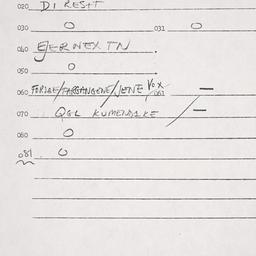 020 DIREKT
030 O 031 O
040 EJERNEXTN.
050 O
060 FORIGE/FARGANGENE/JENE VOX 061 —
070 QGL KUMENDIKE —
080 O
081 O